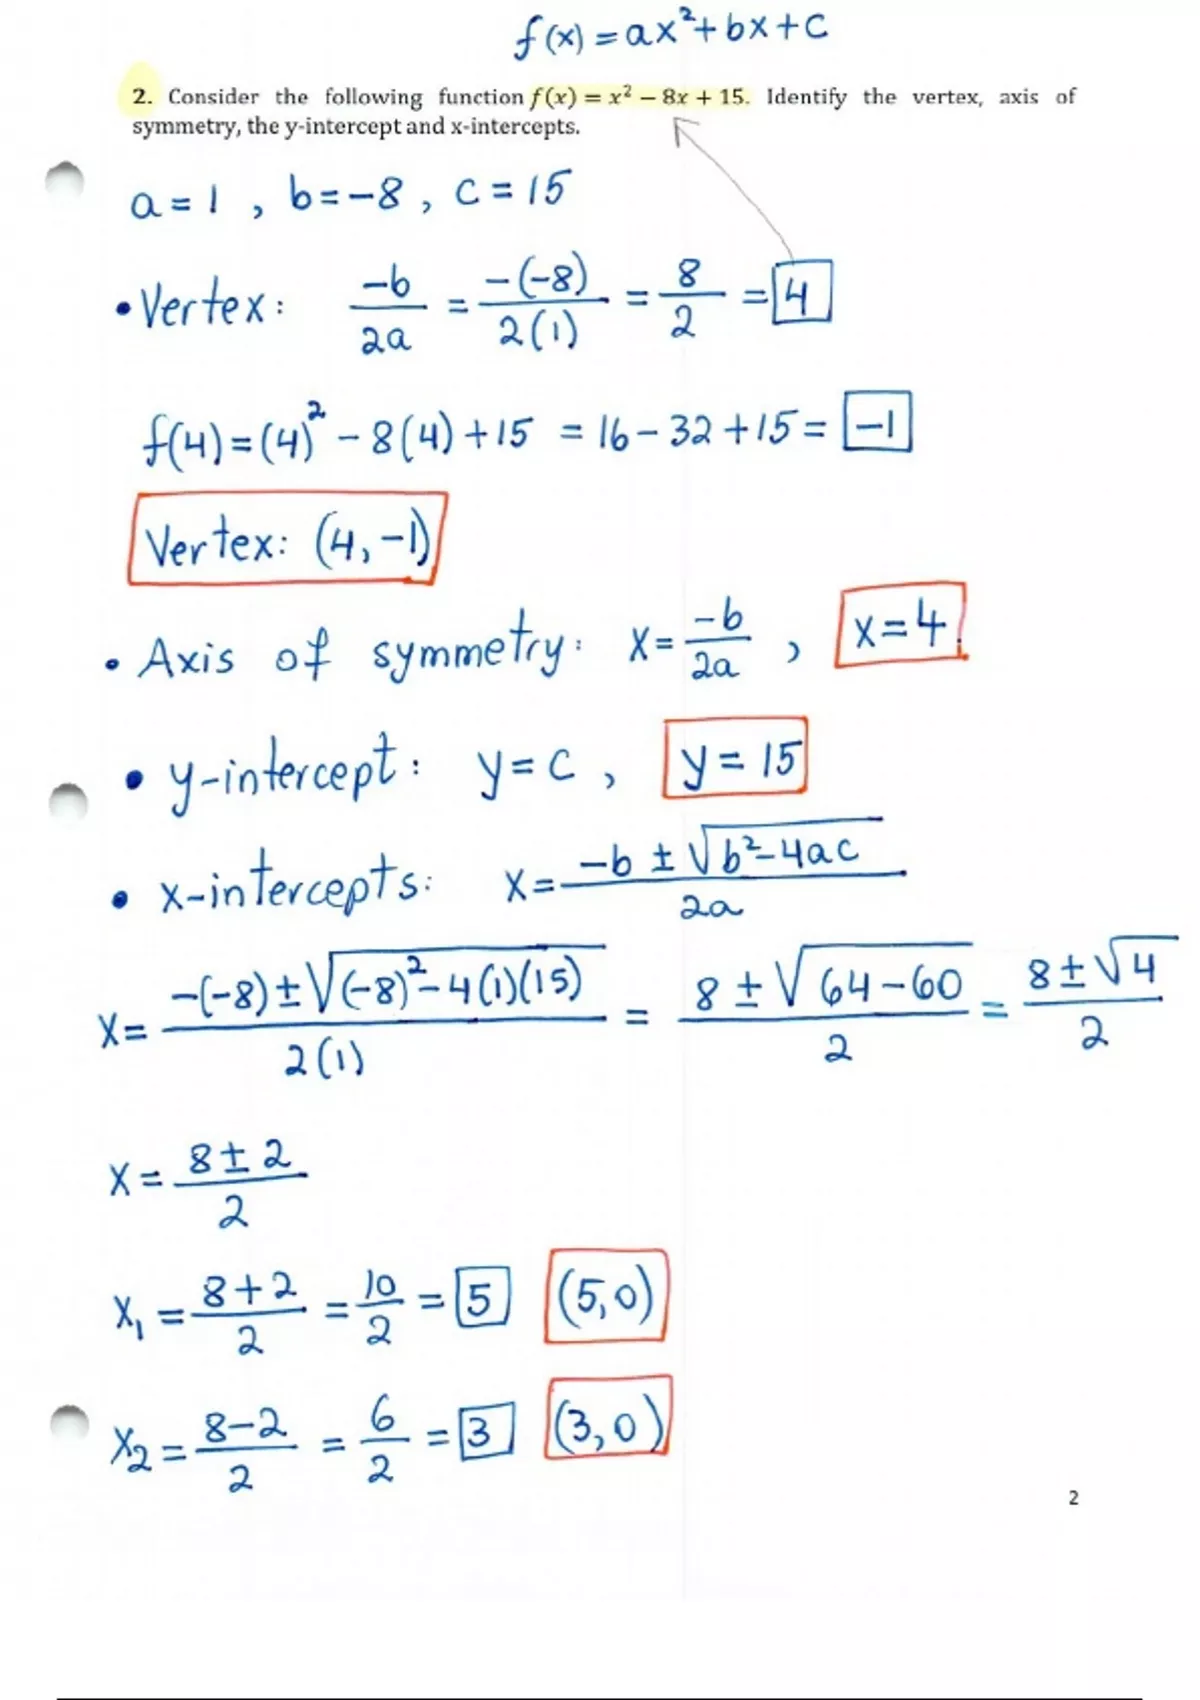 f(x) = ax²+bx+c
2. Consider the following function f(x) = x² − 8x + 15. Identify the vertex, axis of
symmetry, the y-intercept and x-intercepts.
a = 1 , b = -8 , c = 15
• Vertex: -b/2a = -(-8)/2(1) = 8/2 = 4
f(4) = (4)² - 8(4) + 15 = 16 - 32 + 15 = -1
Vertex: (4, -1)
• Axis of symmetry: x = -b/2a , x = 4
• y-intercept: y = c , y = 15
• x-intercepts: x = -b ± √b²-4ac / 2a
x = -(-8) ± √(-8)² - 4(1)(15) / 2(1) = 8 ± √64-60 / 2 = 8 ± √4 / 2
x = 8 ± 2 / 2
x₁ = 8+2/2 = 10/2 = 5 (5,0)
x₂ = 8-2/2 = 6/2 = 3 (3,0)
2